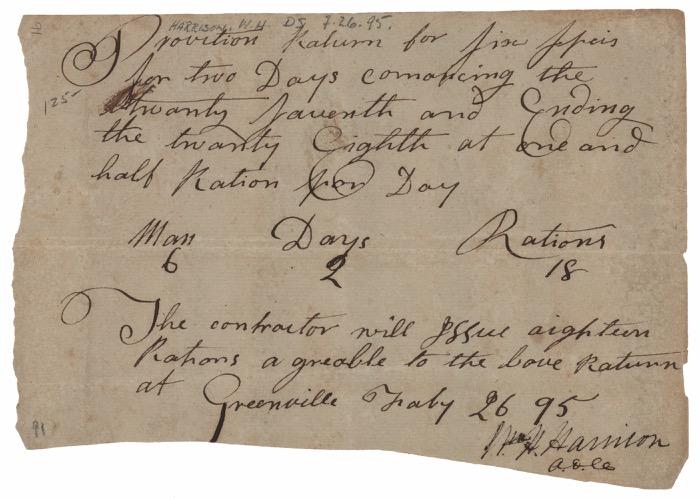 HARRISON, W.H. DS 7.26.95.
Provition Raturn for six speis
for two Days comancing the
125
twanty saventh and Ending
the twanty Eighth at one and
half Ration per Day
Man Days Rations
6 2 18
The contractor will Jssue aighteen
Rations a greable to the bove Raturn
at Greenville July 26 95
Wm H. Harrison
a.d.c